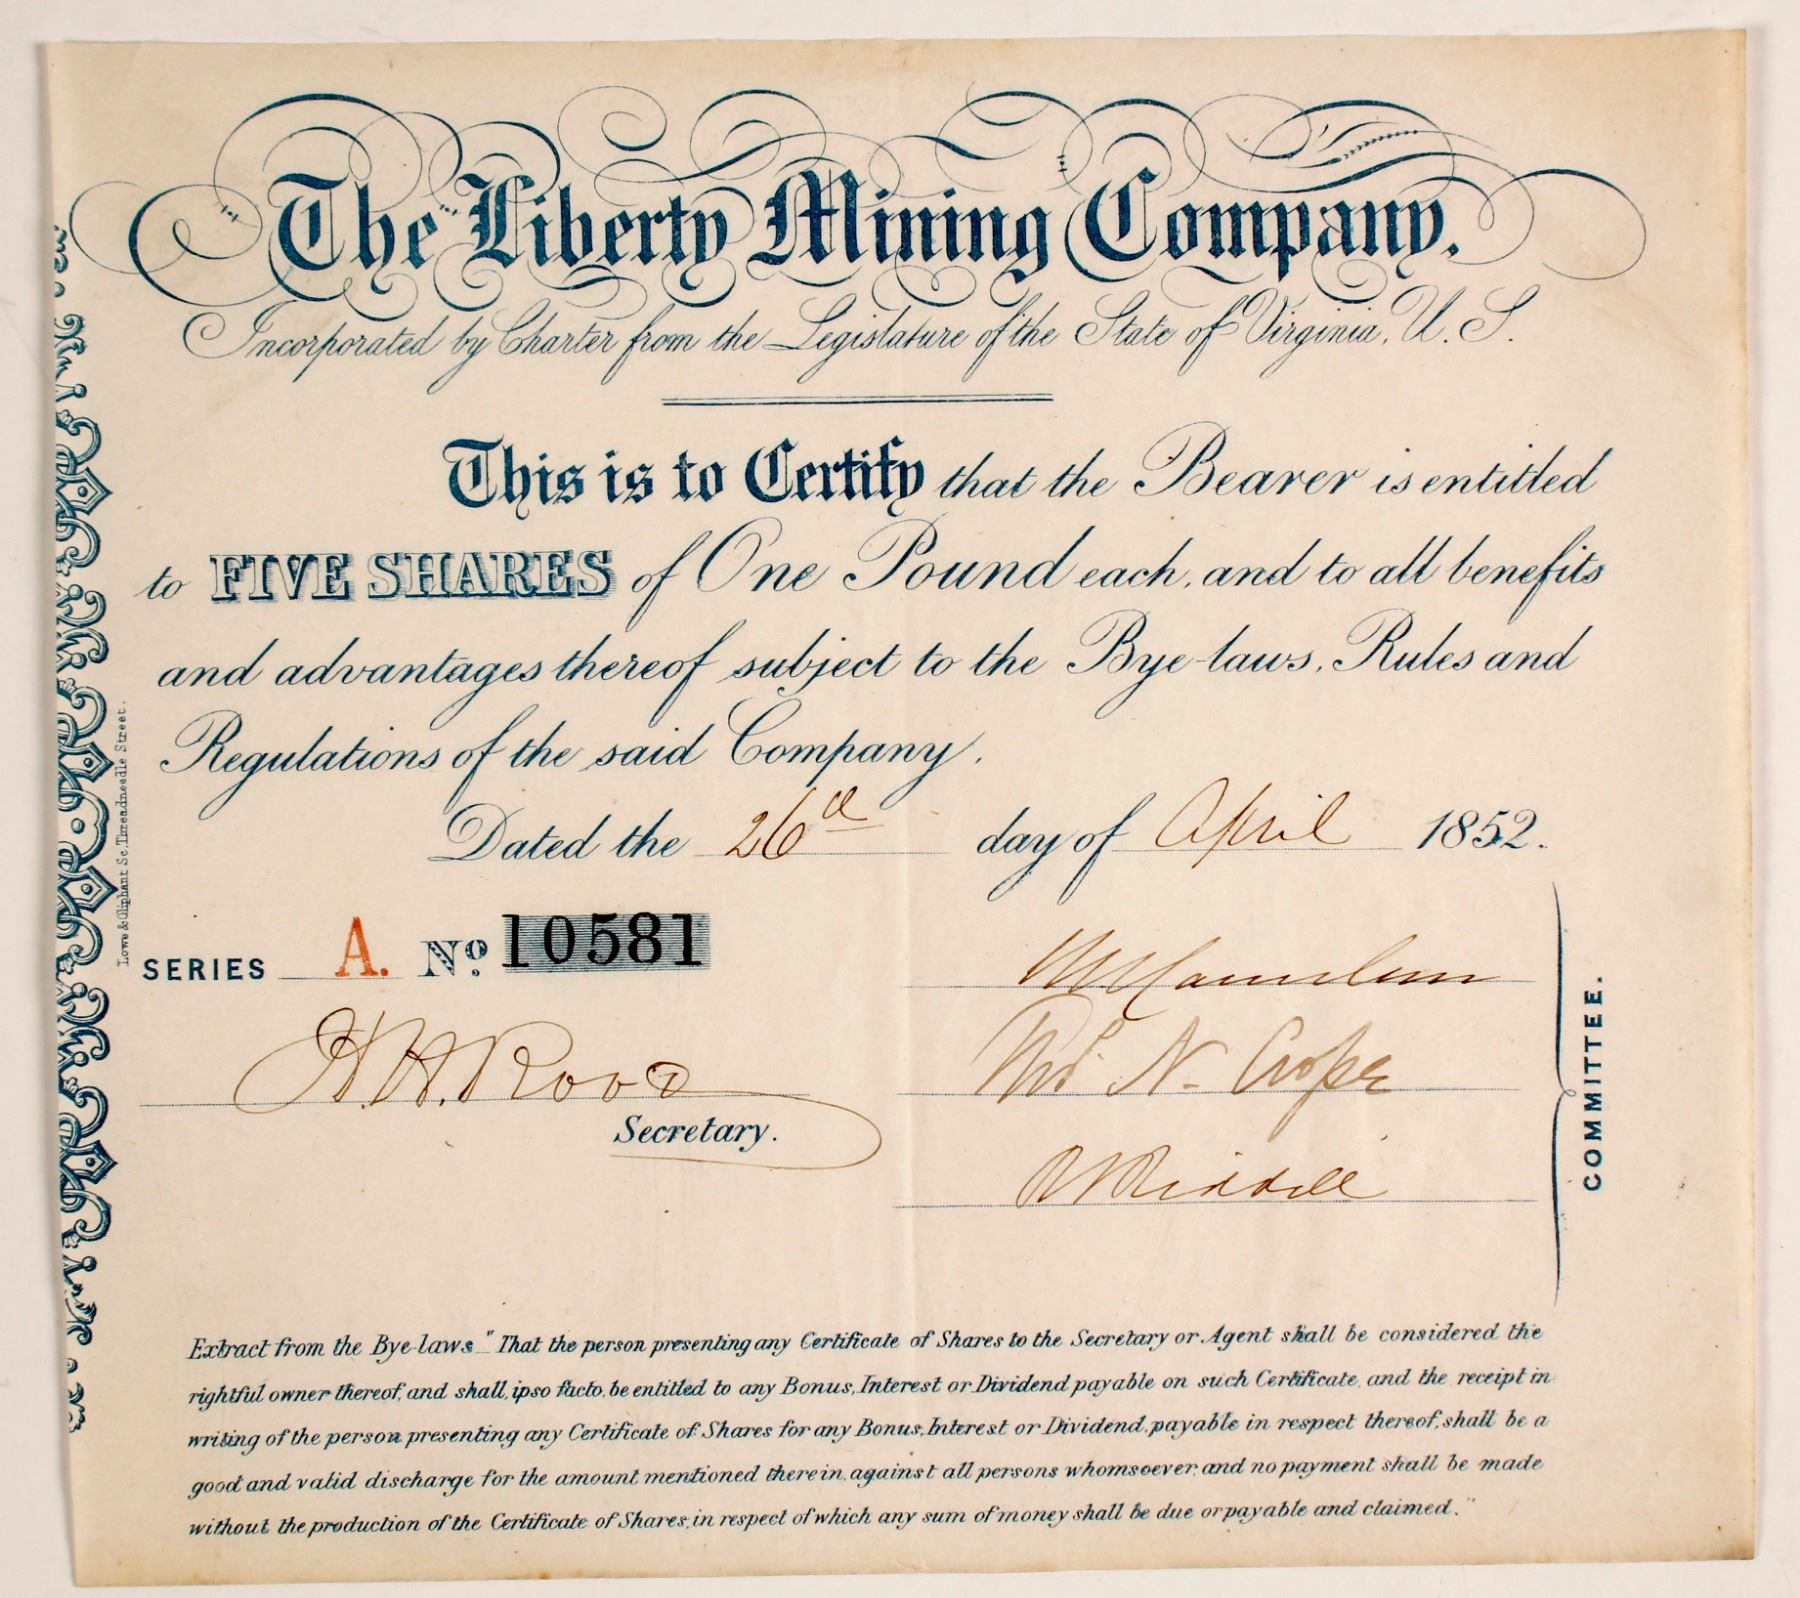 The Liberty Mining Company.
Incorporated by Charter from the Legislature of the State of Virginia, U. S.
This is to Certify that the Bearer is entitled
to FIVE SHARES of One Pound each, and to all benefits
and advantages thereof subject to the Bye-laws, Rules and
Regulations of the said Company.
Dated the 26th day of April 1852.
SERIES A. No. 10581
H. H. Rood
Secretary.
Thos. N. Cooper
COMMITTEE.
Lowe & Oliphant Sc, Threadneedle Street.
Extract from the Bye-laws "That the person presenting any Certificate of Shares to the Secretary or Agent shall be considered the
rightful owner thereof, and shall, ipso facto, be entitled to any Bonus, Interest or Dividend payable on such Certificate, and the receipt in
writing of the person presenting any Certificate of Shares for any Bonus, Interest or Dividend, payable in respect thereof, shall be a
good and valid discharge for the amount mentioned therein, against all persons whomsoever; and no payment shall be made
without the production of the Certificate of Shares, in respect of which any sum of money shall be due or payable and claimed."